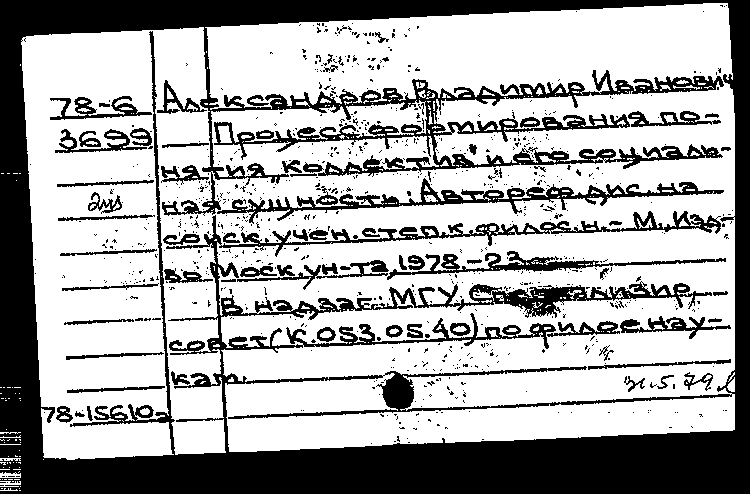 78-6 Александров, Владимир Иванович
3699 Процесс формирования по-
нятия „коллектив и его социаль-
ная сущность: Автореф. дис. на
соиск. учен. степ. к. филос. н. - М., Изд-
во Моск. ун-та, 1978. - 23
В надзаг.: МГУ, Специализир.
совет (К.053.05.40) по филос. нау-
кам.
31.5.79
78-15610а